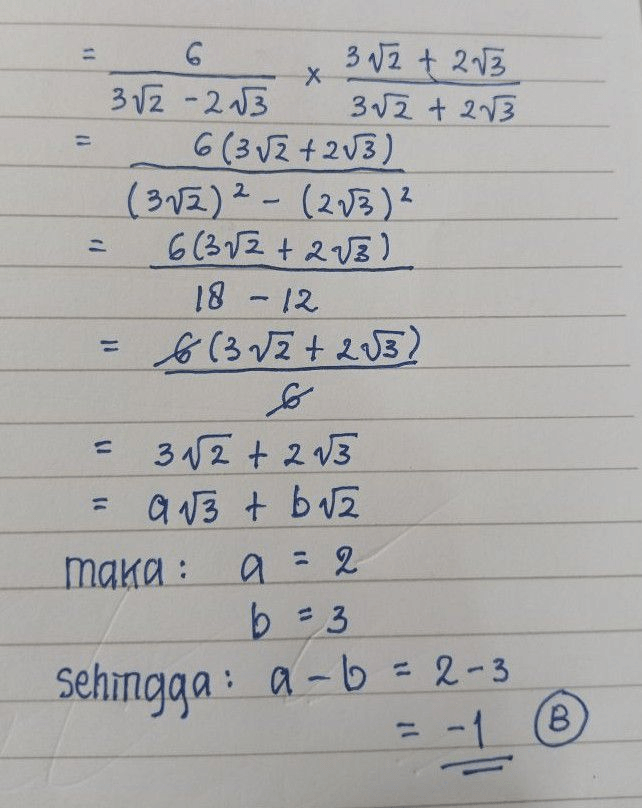 = 6/(3√2 - 2√3) × (3√2 + 2√3)/(3√2 + 2√3)
= 6(3√2 + 2√3)/((3√2)² - (2√3)²)
= 6(3√2 + 2√3)/(18 - 12)
= 6(3√2 + 2√3)/6
= 3√2 + 2√3
= a√3 + b√2
maka : a = 2
b = 3
sehingga : a - b = 2 - 3
= -1 B